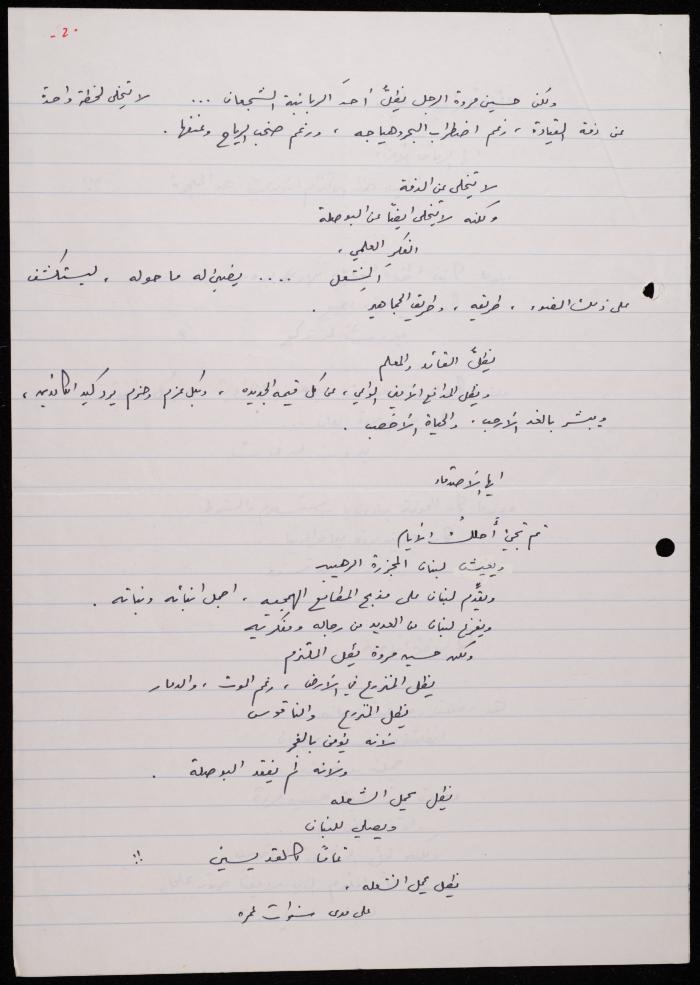 - 2 -
ولكن حسين مروة الرجل يظلّ أحدَ الربابنة الشجعان ... لا يتخلى لحظة واحدة
عن دفة القيادة ، رغم اضطراب البحر وهياجه ، ورغم صخب الرياح وعنفها .
لا يتخلى عن الدفة
ولكنه لا يتخلى ايضًا عن البوصلة
الفكر العلمي ،
المشعل .... يضيئ له ما حوله ، ليستكشف
على ذلك الضوء ، طريقه ، وطريق الجماهير .
يظلّ القائد والمعلم
ويظل المدافع الأمين الواعي ، عن كل قيمه الجديده ، وبكل عزم وحزم يرد كيد الكائدين ،
ويبشر بالغد الأرحب ، والحياة الأخصب .
ايها الأصدقاء
ثم تجيئ أحلكُ الأيام
ويعيش لبنان المجزرة الرهيبه
ويقدِّم لبنان على مذبح المطامع الهمجيه ، اجمل ابنائه وبناته .
ويفرغ لبنان من العديد من رجاله ومفكريه
ولكن حسين مروة يظل الملتزم
يظل المنزرع في الأرض ، رغم الموت ، والدمار
يظل المترع والناقوس
لأنه يؤمن بالفجر
ولأنه لم يفقد البوصلة .
يظل يحمل الشعله
ويصلي للبنان
تمامًا كالقديسين
يظل يحمل الشعله ،
على مدى سنوات عمره